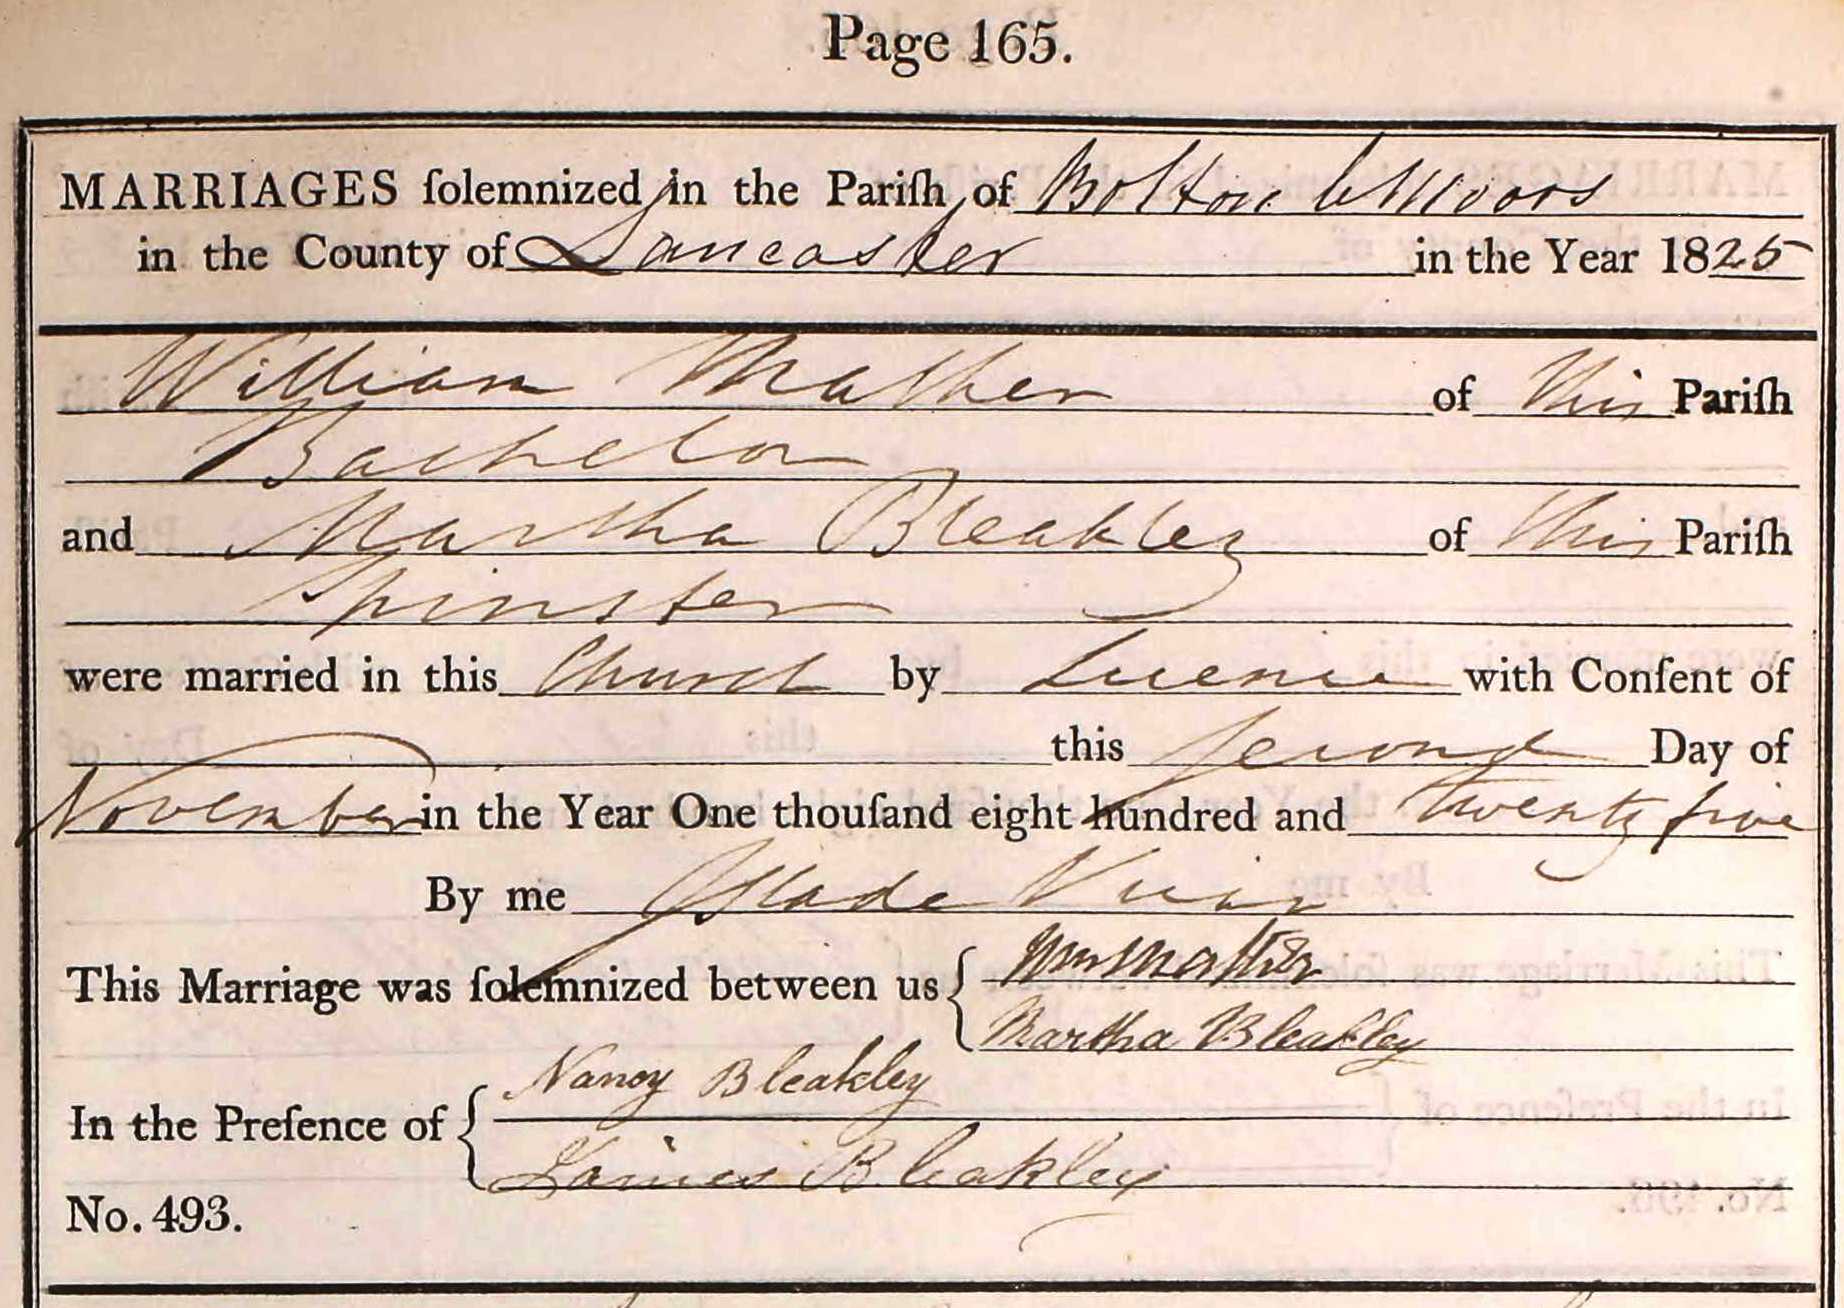 Page 165.
MARRIAGES ſolemnized in the Pariſh of Bolton le Moors
in the County of Lancaster in the Year 1825
William Mather of this Pariſh
Bachelor
and Martha Bleakley of this Pariſh
Spinster
were married in this Church by Licence with Conſent of
this Second Day of
November in the Year One thouſand eight hundred and twenty five
By me J Slade Vicar
This Marriage was ſolemnized between us { Wm Mather
Martha Bleakley
In the Preſence of { Nancy Bleakley
James Bleakley
No. 493.